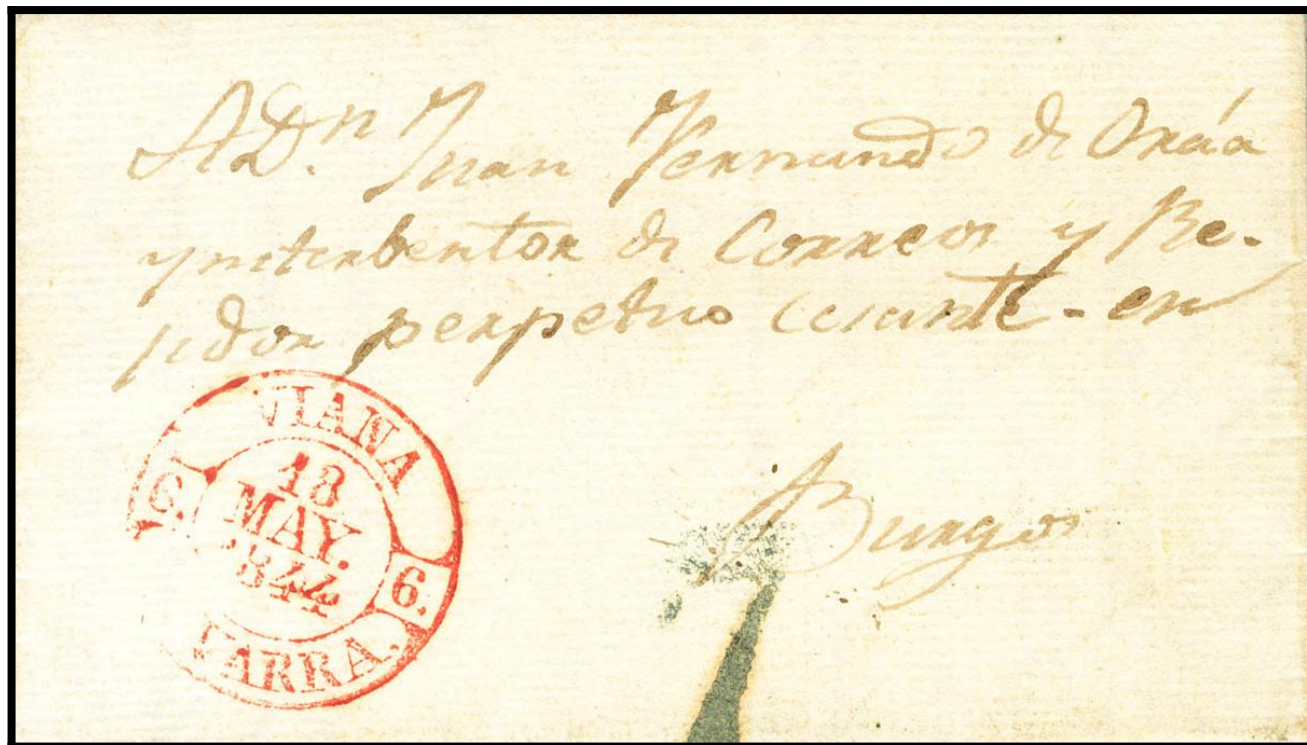 A Dn. Juan Fernando de Oráa
ynterbentor de Correos y Re-
jidor perpetuo cesante - en
Burgos
VIANA
6.
18
MAY.
1844
6.